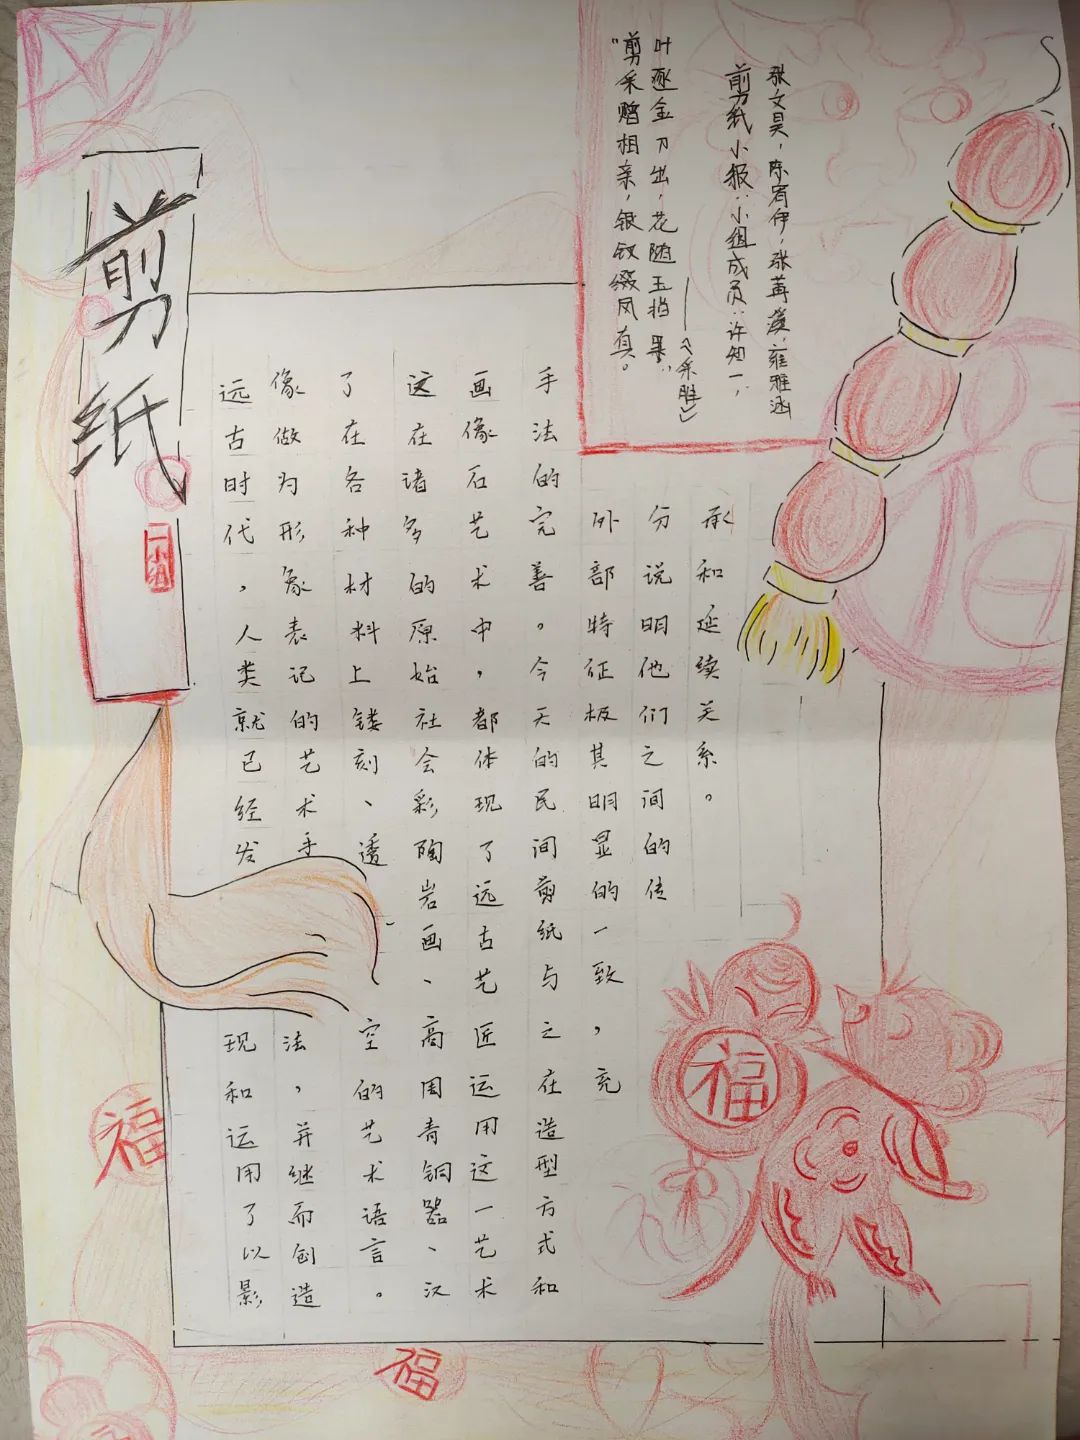 剪纸
"剪采赠相亲,银钗缀凤真。
叶逐金刀出,花随玉指
——《采胜》
剪纸小报:小组成员:许知一,
张文昊,陈宥伊,张苒,雍雅涵
远古时代,人类就已经发现和运用了以影
像做为形象表记的艺术手法,并继而创造
了在各种材料上镂刻、透空的艺术语言。
这在诸多的原始社会彩陶岩画、高周青铜器、汉
画像石艺术中,都体现了远古艺匠运用这一艺术
手法的完善。今天的民间剪纸与之在造型方式和
外部特征极其明显的一致,充
分说明他们之间的传
承和延续关系。
福
福
福